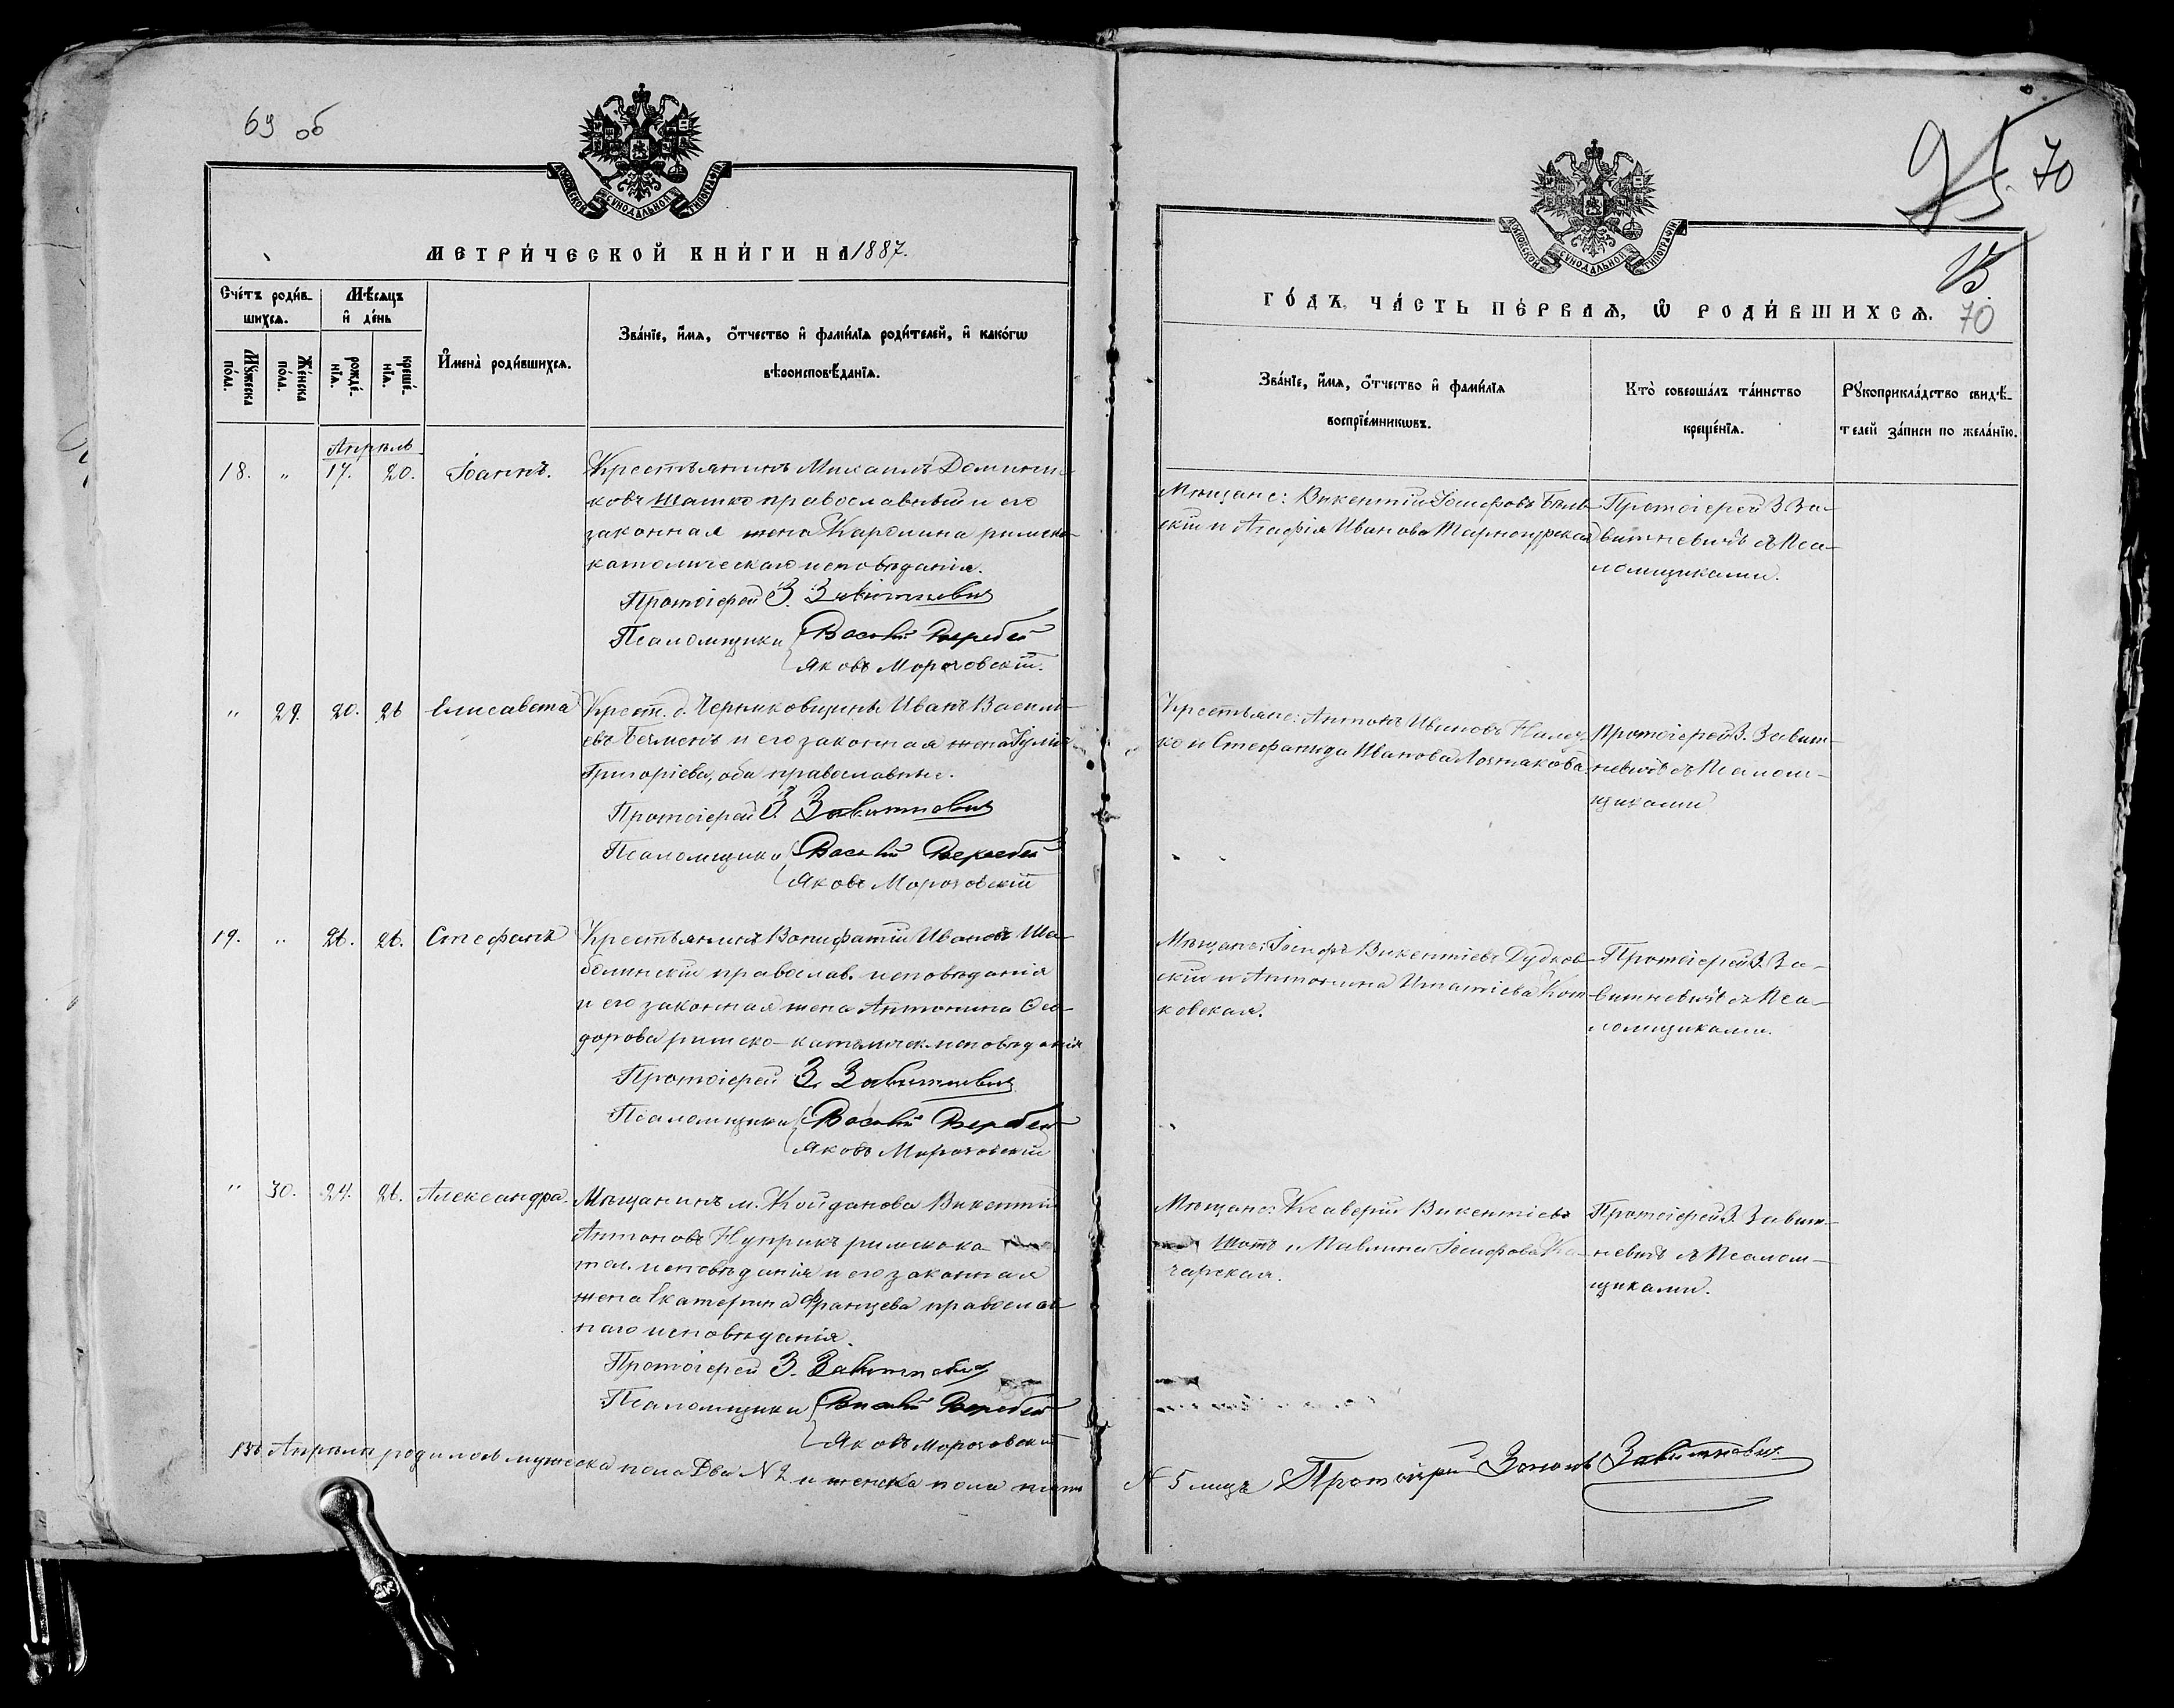 69 об
МОСКОВСКОЙ СѴНОДАЛЬНОЙ ТИПОГРАФІИ
МЕТРИ́ЧЕСКОЙ КНИ́ГИ НА 1887.
Сче́тъ роди́вшихся.
Мѣ́сяцъ и҆ де́нь
И҆мена̀ роди́вшихся.
Зва́нїе, и҆́мя, ѻ҆́тчество и҆ фами́лїя роди́телей, и҆ како́гѡ
вѣроисповѣ́данїя.
Мꙋ́жеска по́ла.
Же́нска по́ла.
рожде́нїя.
креще́нїя.
Апрѣль
18. „ 17. 20. Іоаннъ.
Крестьянинъ Михаилъ Домини-
ковъ Шашко православный и его
законная жена Каролина римско-
католическаго исповѣданія.
Протоіерей З. Завитневич
Псаломщики Василій Веребей
Яковъ Мороховскій.
„ 29. 20. 26 Елисавета
Крест. д. Черниковщины Иванъ Василь-
евъ Бечменъ и его законная жена Іулія
Григоріева, оба православные.
Протоіерей З. Завитневич
Псаломщики Василій Веребей
Яковъ Мороховскій
19. „ 26. 26. Стефанъ
Крестьянинъ Вонифатій Ивановъ Ша-
блинскій православ. исповѣданія
и его законная жена Антонина Ѳео-
дорова римско-католическ. исповѣданія
Протоіерей З. Завитневич
Псаломщики Василій Веребей
Яковъ Мороховскій
„ 30. 24. 26. Александра.
Мѣщанинъ м. Койданова Викентій
Антоновъ Нуприкъ римскока-
тол. исповѣданія и его законная
жена Екатерина Францева православ-
наго исповѣданія.
Протоіерей З. Завитневич
Псаломщики Василій Веребей
Яковъ Мороховскій
Апрѣлѣ родилось мужеска пола Два N 2 и женска пола пять
70
МОСКОВСКОЙ СѴНОДАЛЬНОЙ ТИПОГРАФІИ
70
ГО́ДЪ, ЧА́СТЬ ПЕ́РВАЯ, Ѡ҆ РОДИ́ВШИХСЯ.
Зва́нїе, и҆́мя, ѻ҆́тчество и҆ фами́лїя
воспрїе́мникѡвъ.
Кто̀ соверша́лъ та́инство
креще́нїя.
Рꙋкоприкла́дство свидѣ́-
телей за́писи по жела́нїю.
Мѣщане: Викентій Іосифовъ Бѣль-
скій и Агафія Иванова Тарногурская
Протоіерей З. За-
витневичъ съ Пса-
ломщиками.
Крестьяне: Антонъ Ивановъ
и Стефанида Иванова
Протоіерей З. Завит-
невичъ съ Псалом-
щиками
Мѣщане: Іосифъ Викентіевъ Дудков-
скій и Антонина Игнатіева Кот-
ковская.
Протоіерей З. За-
витневичъ съ Пса-
ломщиками.
Мѣщане: Ксаверій Викентіевъ
Шотъ и Павлина Іосифова Ка-
чарская.
Протоіерей З. Завит-
невичъ съ Псалом-
щиками.
N 5 лицъ Протоіерей Зенонъ Завитневич